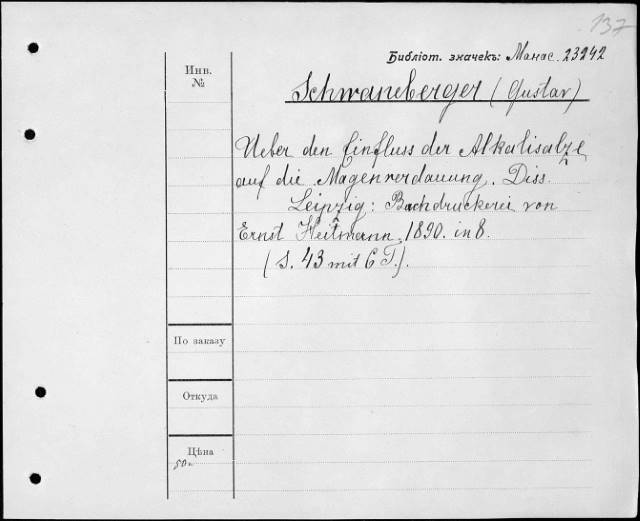 137
Библіот. значекъ: Манас. 23242
Инв.
№
Schwaneberger (Gustav)
Ueber den Einfluss der Alkalisalze
auf die Magenverdauung. Diss.
Leipzig: Bachdruckerei von
Ernst Heitmann, 1890. in 8.
(S. 43 mit 6 T.).
По заказу
Откуда
Цѣна
50